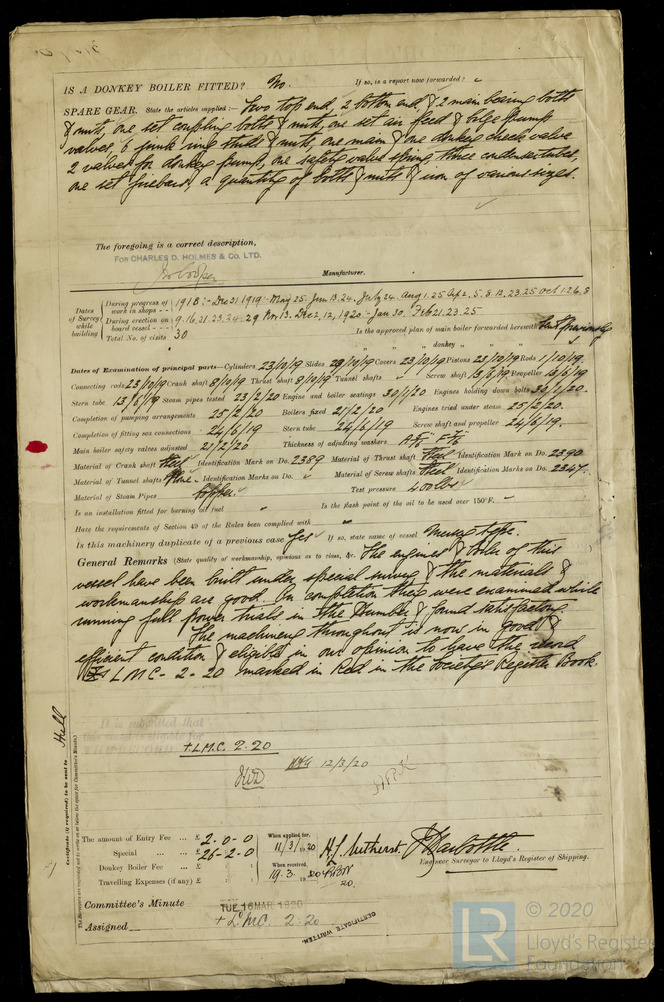 IS A DONKEY BOILER FITTED? No. If so, is a report now forwarded?
SPARE GEAR. State the articles supplied:— Two top end, 2 bottom end, & 2 main bearing bolts
& nuts, one set coupling bolts & nuts, one set air feed & bilge pump
valves, 6 junk ring studs & nuts, one main & one donkey check valve
2 valves for donkey pump, one safety valve spring three condenser tubes,
one set firebars, a quantity of bolts & nuts & iron of various sizes.
The foregoing is a correct description,
FOR CHARLES D. HOLMES & CO. LTD.
Manufacturer.
Dates of Survey while building
During progress of work in shops - - 1918:- Dec 21. 1919:- May 25. Jun 13. 24. July 24. Aug 1. 25 Sep 2. 5. 8. 13. 23. 25 Oct 1. 2. 6. 8
During erection on board vessel - - - 9. 16. 21. 23. 24. 29 Nov 13. Dec 2, 12, 1920:- Jan 30. Feb 21. 23. 25
Total No. of visits 30 Is the approved plan of main boiler forwarded herewith Sent previously
" " " donkey " " "
Dates of Examination of principal parts—Cylinders 23/10/19 Slides 23/10/19 Covers 23/10/19 Pistons 23/10/19 Rods 1/10/19.
Connecting rods 23/10/19 Crank shaft 8/10/19 Thrust shaft 8/10/19 Tunnel shafts Screw shaft 13/6/19 Propeller 13/6/19
Stern tube 13/6/19 Steam pipes tested 23/2/20 Engine and boiler seatings 30/1/20 Engines holding down bolts 30/1/20.
Completion of pumping arrangements 25/2/20 Boilers fixed 21/2/20 Engines tried under steam 25/2/20.
Completion of fitting sea connections 24/6/19 Stern tube 24/6/19 Screw shaft and propeller 24/6/19.
Main boiler safety valves adjusted 21/2/20 Thickness of adjusting washers
Material of Crank shaft Steel Identification Mark on Do. 2389 Material of Thrust shaft Steel Identification Mark on Do. 2390
Material of Tunnel shafts None. Identification Marks on Do. Material of Screw shafts Steel Identification Marks on Do. 2247.
Material of Steam Pipes Copper. Test pressure 400 lbs
Is an installation fitted for burning oil fuel Is the flash point of the oil to be used over 150°F.
Have the requirements of Section 49 of the Rules been complied with
Is this machinery duplicate of a previous case Yes If so, state name of vessel Mersey type.
General Remarks (State quality of workmanship, opinions as to class, &c. The engines & boiler of this
vessel have been built under special survey & the materials &
workmanship are good. On completion they were examined while
running full power trials in the Humber & found satisfactory.
The machinery throughout is now in good &
efficient condition & eligible in our opinion to have the record
+ LMC - 2 - 20 marked in Red in the Society's Register Book.
It is submitted that
+ L.M.C. 2.20
12/3/20
Hull
Certificate (if required) to be sent to
The Surveyors are requested not to write on or below the space for Committee's Minute.
The amount of Entry Fee ... £ 2 - 0 - 0 When applied for,
Special ... ... £ 26 - 2 - 0 11/3/1920
Donkey Boiler Fee ... £ When received,
Travelling Expenses (if any) £ 19.3.1920
Engineer Surveyor to Lloyd's Register of Shipping.
Committee's Minute TUE 16 MAR 1920
Assigned + L.M.C. 2.20
CERTIFICATE WRITTEN.
LR © 2020
Lloyd's Register
Foundation